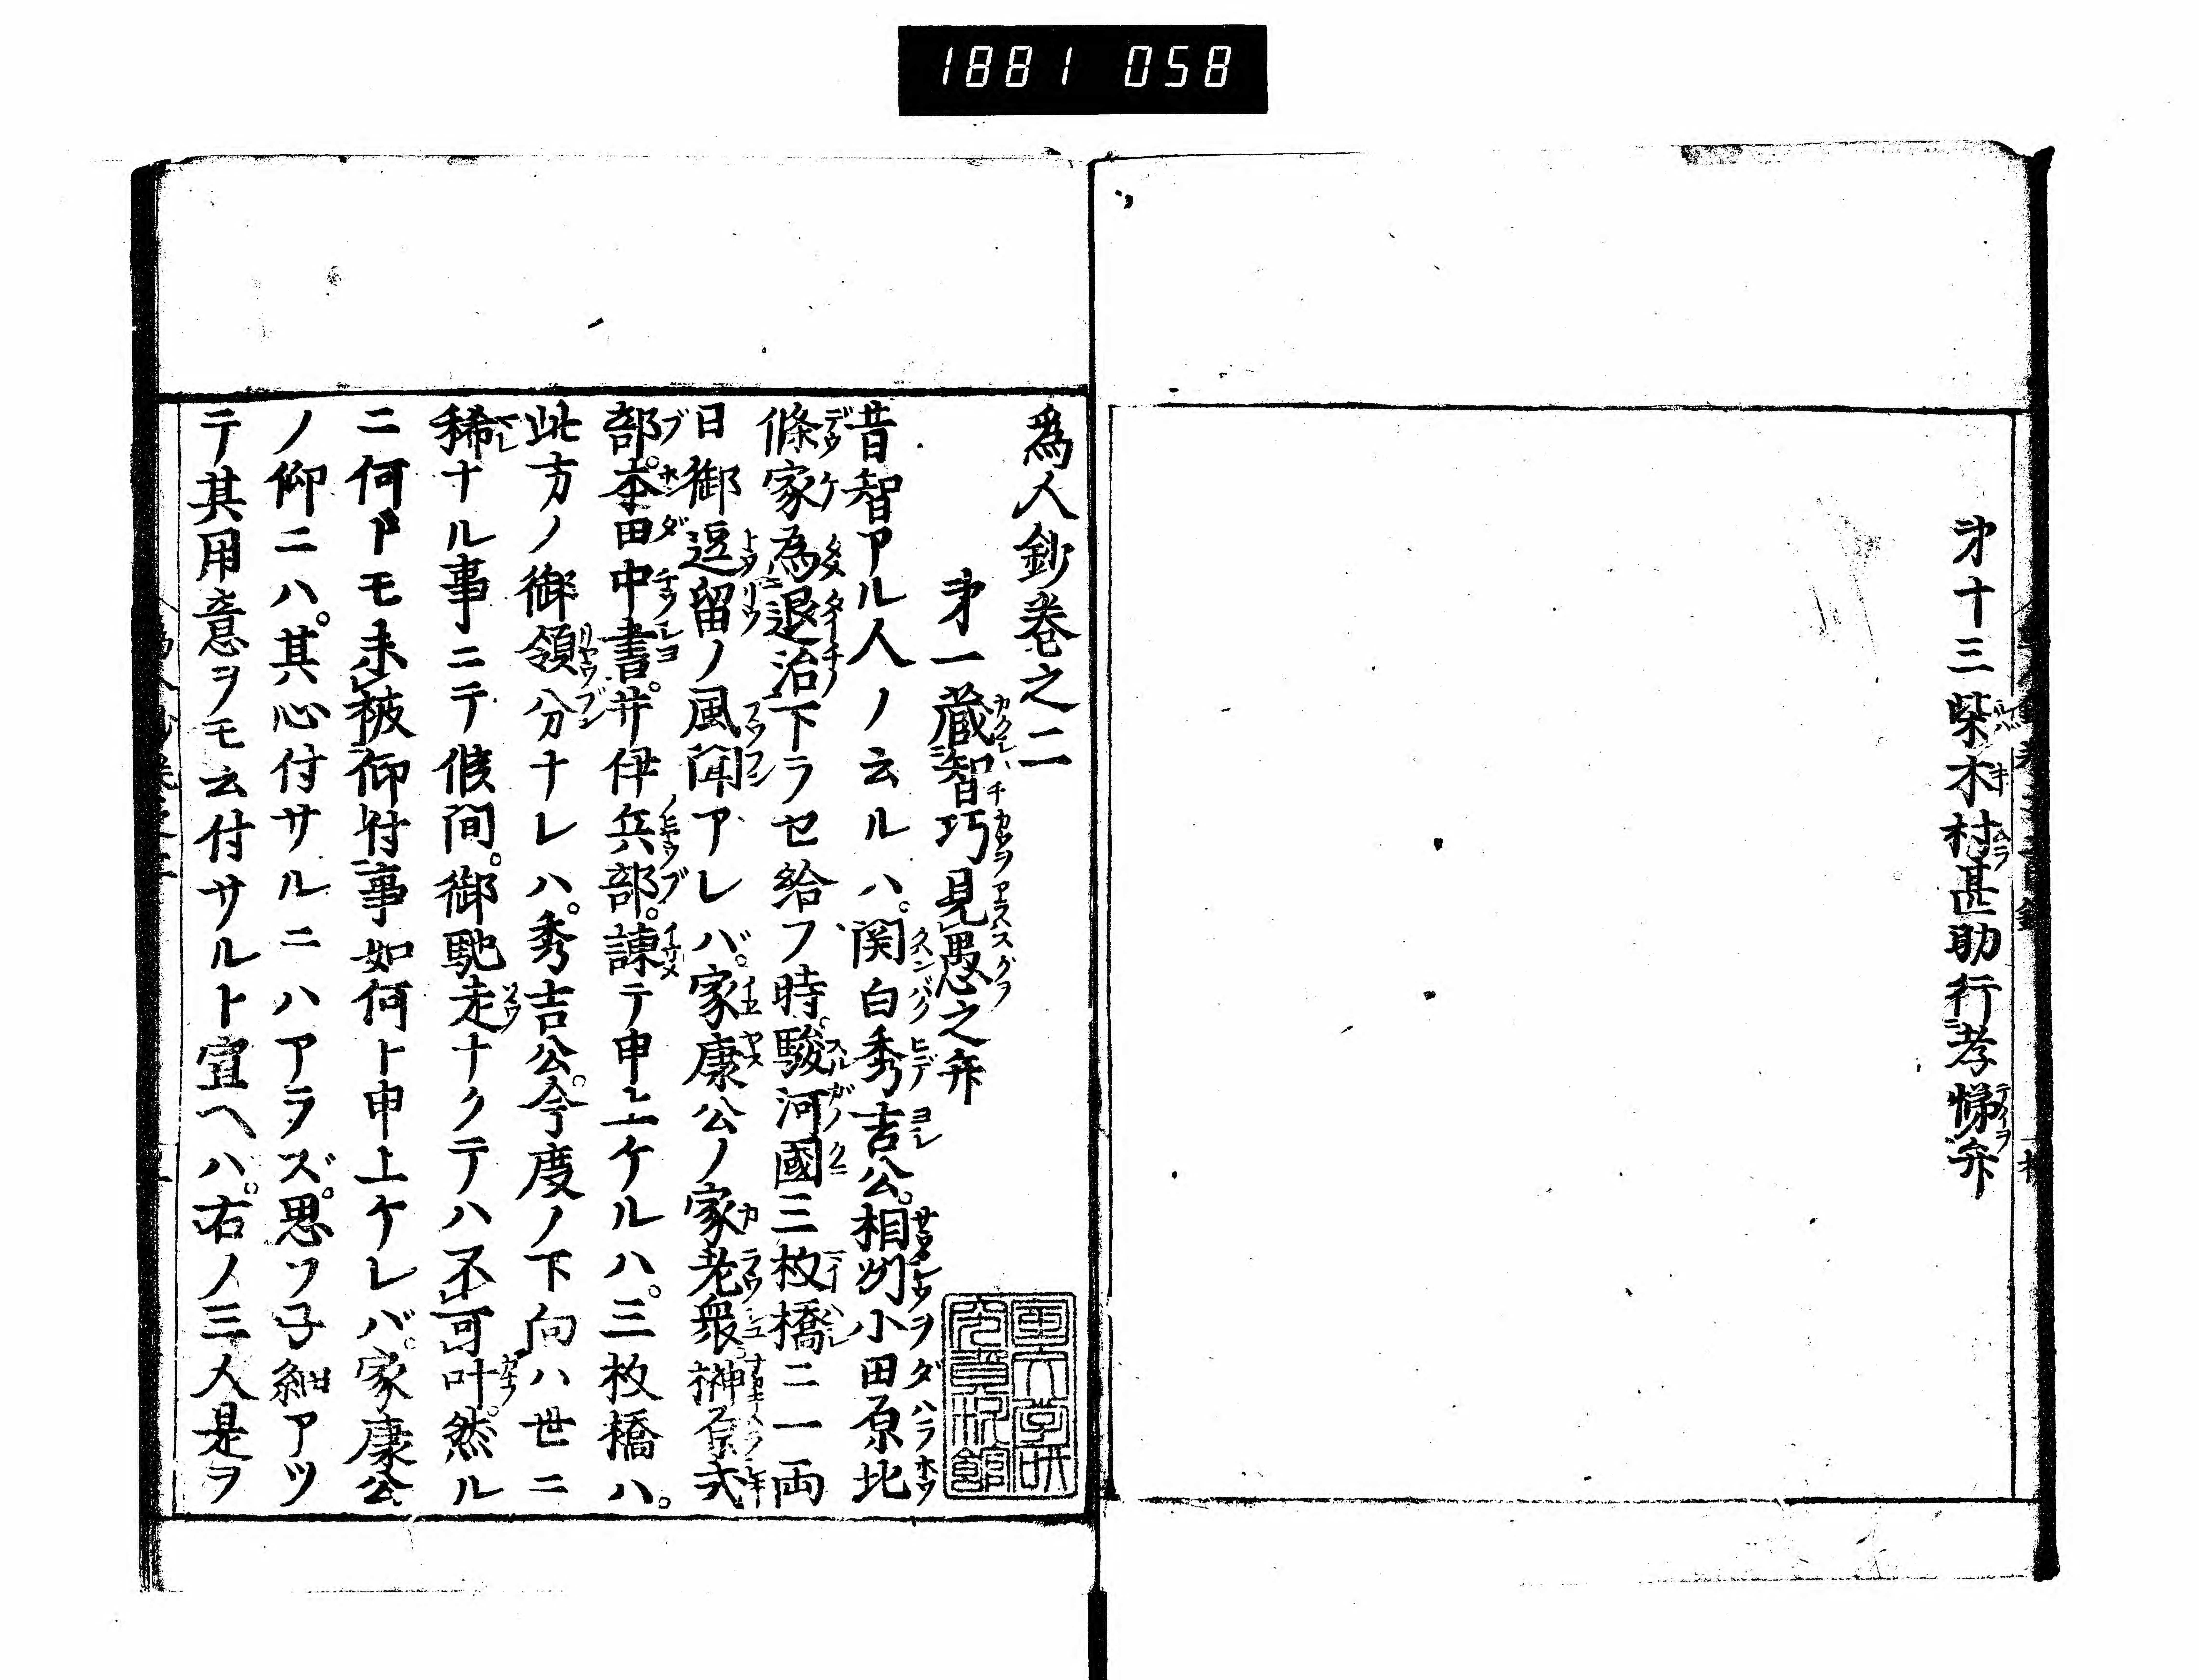 1881 058
才十三柴木村甚助行孝悌弁
為人鈔巻之二
才一蔵智巧見愚之弁
昔智アル人ノ云ルハ。関白秀吉公。相州小田原北
條家為退治下ラセ給フ時。駿河國三枚橋ニ一両
日御逗留ノ風聞アレバ。家康公ノ家老衆。榊原式
部。本田中書。井伊兵部。諌テ申上ケルハ。三枚橋ハ。
此方ノ御領分ナレハ。秀吉公。今度ノ下向ハ世ニ
稀ナル事ニテ候間。御馳走ナクテハ不可叶。然ル
ニ何トモ未被仰付事如何ト申上ケレバ。家康公
ノ仰ニハ。其心付サルニハアラズ。思フ子細アツ
テ其用意ヲモ云付サルト宣ヘハ。右ノ三人是ヲ